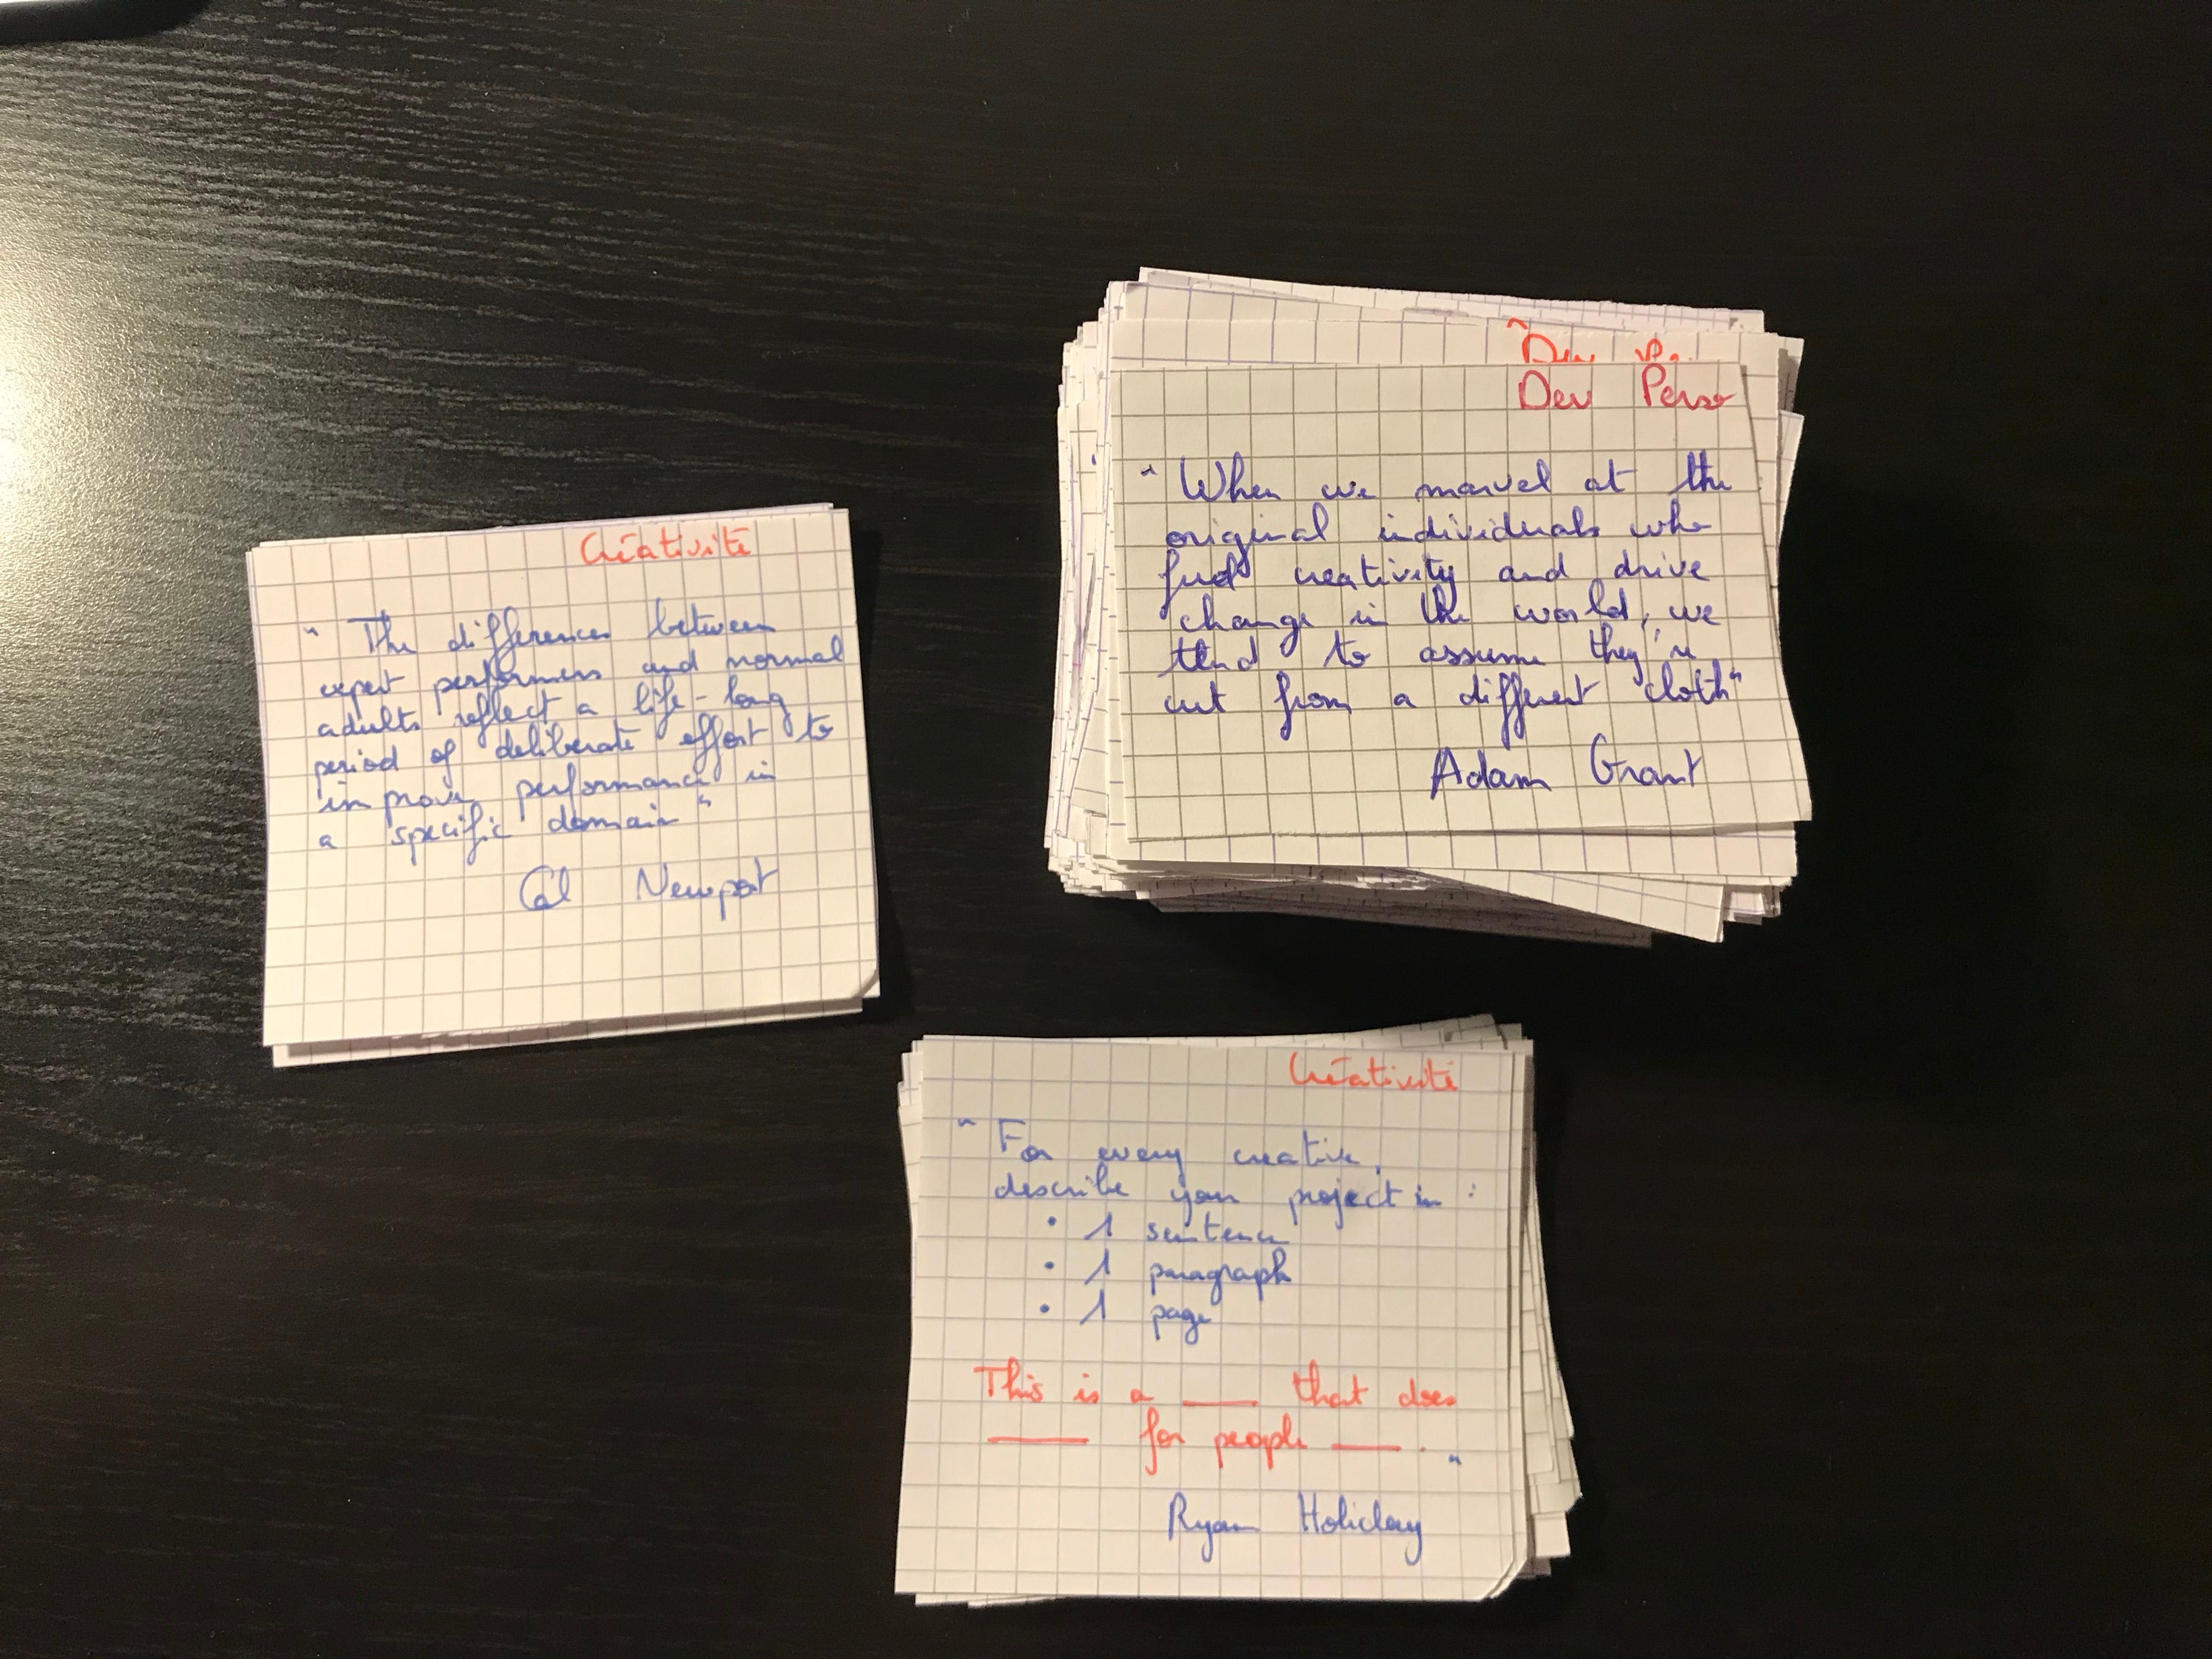 Créativité
" The differences between
expert performers and normal
adults reflect a life-long
period of deliberate effort to
improve performance in
a specific domain "
Cal Newport
Dev Pe
Dev Perso
" When we marvel at the
original individuals who
fuel creativity and drive
change in the world, we
tend to assume they're
cut from a different cloth"
Adam Grant
Créativité
" For every creative,
describe your project in :
• 1 sentence
• 1 paragraph
• 1 page
This is a ___ that does
___ for people ___ . "
Ryan Holiday